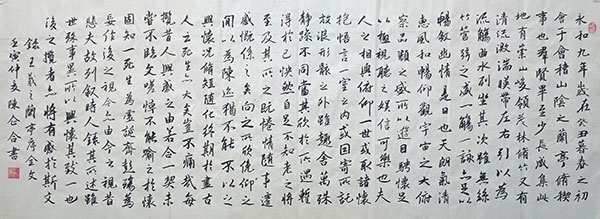 永和九年歲在癸丑暮春之初
會于會稽山陰之蘭亭脩稧
事也群賢畢至少長咸集此
地有崇山峻領茂林脩竹又有
清流激湍暎帶左右引以為
流觴曲水列坐其次雖無絲
竹管絃之盛一觴一詠亦足以
暢敘幽情是日也天朗氣清
惠風和暢仰觀宇宙之大俯
察品類之盛所以遊目騁懷足
以極視聽之娛信可樂也夫
人之相與俯仰一世或取諸懷
抱悟言一室之內或因寄所託
放浪形骸之外雖趣舍萬殊
靜躁不同當其欣於所遇暫
得於己快然自足不知老之將
至及其所之既惓情隨事遷
感慨係之矣向之所欣俛仰之
間以為陳迹猶不能不以之
興懷況脩短隨化終期於盡古
人云死生亦大矣豈不痛哉每
攬昔人興感之由若合一契未
嘗不臨文嗟悼不能喻之於懷
固知一死生為虛誕齊彭殤為
妄作後之視今亦由今之視昔
悲夫故列敘時人錄其所述雖
世殊事異所以興懷其致一也
後之攬者亦將有感於斯文
錄王羲之蘭亭序全文
壬寅仲夏陳合合書